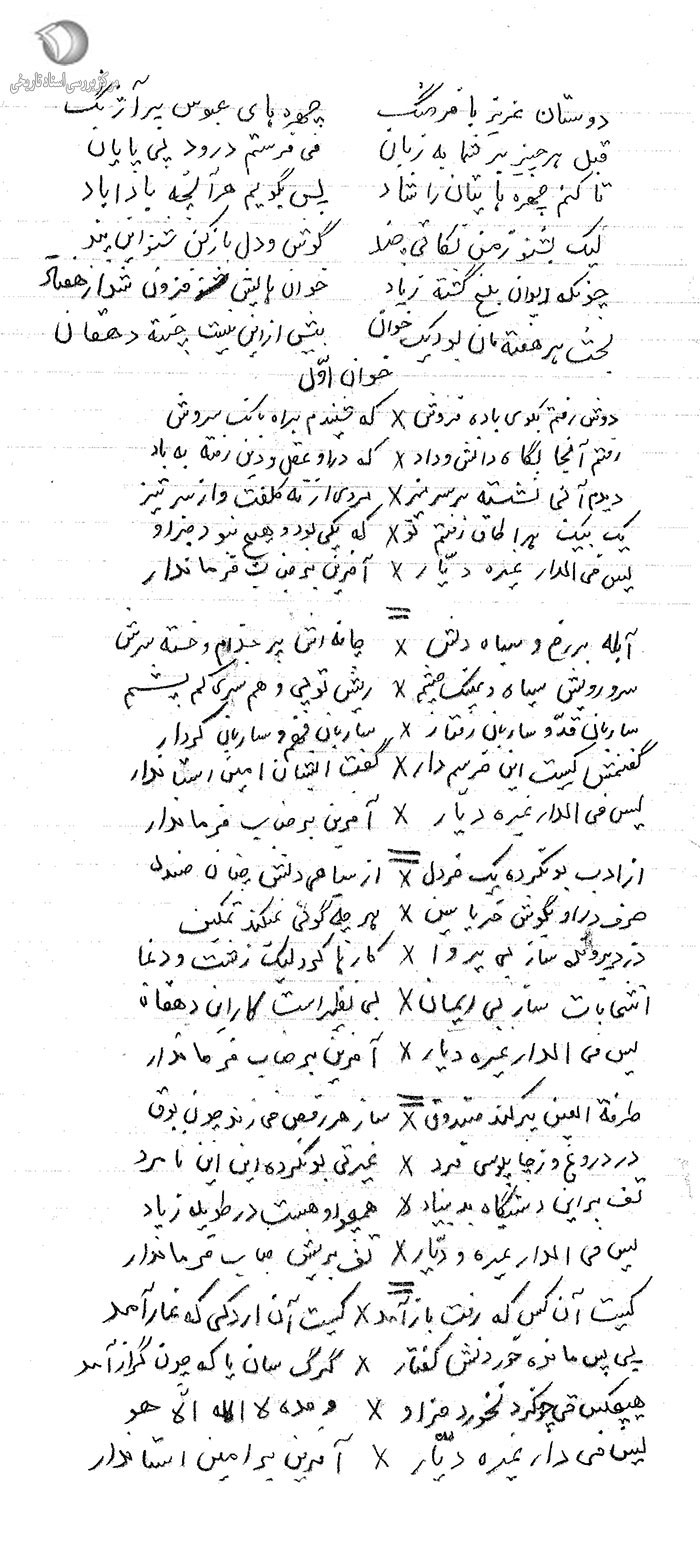 مرکز بررسی اسناد تاریخی
دوستان عزیز با فرهنگ چهره های عبوس پر آژنگ
قبل هر چیز بر شما به زبان می فرستم درود بی پایان
تا کنم چهره هایتان را شاد پس بگویم هر آنچه بادا باد
لیک بشنو ز من نکاتی چند گوش و دل باز کن شنو این پند
چونکه دیوان بلخ گشته زیاد خوان هایش فزون شد از هفتاد
بحث هر هفته مان بود یک خوان بیش از این نیست چنته دهقان
خوان اوّل
دوش رفتم بکوی باده فروش x که شنیدم براه بانگ سروش
رفتم آنجا بگاه دانش و داد x که در او عقل و دین رفته به باد
دیدم آنجا نشسته بر سر میز x مردی از ته کلفت و از سر تیز
یک بیک هر اطاق رفتم تو x که یکی بود و هیچ نبود جز او
لیس فی الدار غیره دیّار x آفرین بر جناب فرماندار
=
آبله بر رخ و سیاه دلش x چانه اش پر جذام و خسته سرش
سر و رویش سیاه و عینک چشم x ریش توپی و هم سری کم پشم
ساربان قدّ و ساربان رفتار x ساربان فهم و ساربان کردار
گفتمش کیست این خر سم دار x گفت ایشان امین استاندار
لیس فی الدار غیره دیّار x آفرین بر جناب فرماندار
=
از ادب بو نکرده یک خردل x از سیاهی دلش چنان
حرف در او بگوش خر یاسین x هر چه گوئی نمیکند تمکین
ساز بی پروا x کارها کرد لیک زشت و دغا
انتخابات ساز بی ایمان x بی نظیر است کار این دهقان
لیس فی الدار غیره دیار x آفرین بر جناب فرماندار
=
طرفة العین پر کند صندوق x ساز هر رقص می زند چون بوق
در دروغ و ز چاپلوسی فرد x غیرتی بو نکرده این نامرد
تف بر این دستگاه بد بنیاد x همچو او هست در طویله زیاد
لیس فی الدار غیره و دیّار x تف بریش جناب فرماندار
=
کیست آن کس که رفت باز آمد x کیست آن اردکی که غاز آمد
پی پس مانده خوردنش کفتار x گرگ سان پا که چون گراز آمد
هیچکس قی چو کرد نخورد جز او x وحده لا اله الّا هو
لیس فی دار غیره دیّار x آفرین بر امین استاندار